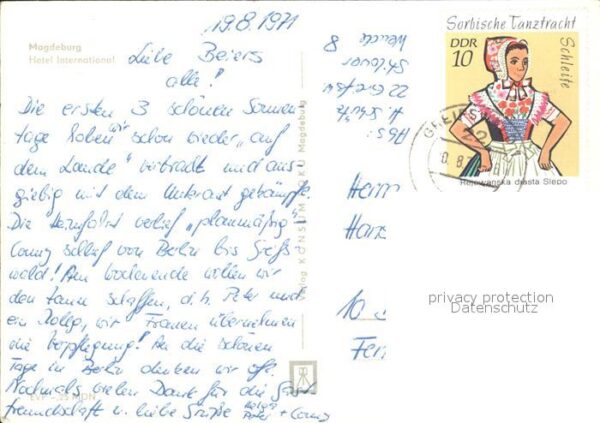 19.8.1971
Magdeburg
Hotel International
Liebe Beiers
alle!
Die ersten 3 schönen Sonnen-
tage haben wir schon wieder "auf
dem Lande" verbracht und aus-
giebig mit dem Unkraut gekämpft.
Die Heimfahrt verlief "planmäßig"
Conny schlief von Berlin bis Greifs-
wald! Am Wochenende wollen wir
den Zaun schaffen, d.h. Peter und
ein Kolleg, wir Frauen übernehmen
die Verpflegung! An die schönen
Tage in Berlin denken wir oft.
Nochmals vielen Dank für die Gast-
freundschaft u. liebe Grüße
Peter + Conny
EVP -,25 MDN
Verlag KONSUM Magdeburg
Abs:
22 Greifsw.
8
Sorbische Tanztracht
DDR
10
Schleife
Rejowanska drasta Slepo
GREIFS
22
Herrn
Hans
10
privacy protection
Datenschutz